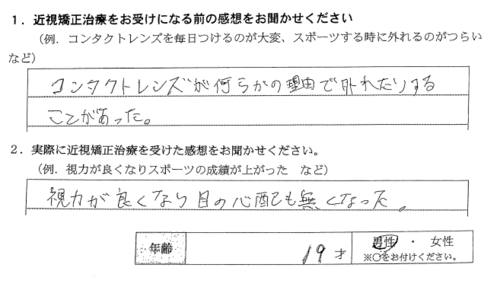 1．近視矯正治療をお受けになる前の感想をお聞かせください
（例．コンタクトレンズを毎日つけるのが大変、スポーツする時に外れるのがつらい
など）
コンタクトレンズが何らかの理由で外れたりする
ことがあった。
2．実際に近視矯正治療を受けた感想をお聞かせください。
（例．視力が良くなりスポーツの成績が上がった　など）
視力が良くなり目の心配も無くなった。
年齢　19才　男性　・　女性
※○をお付けください。